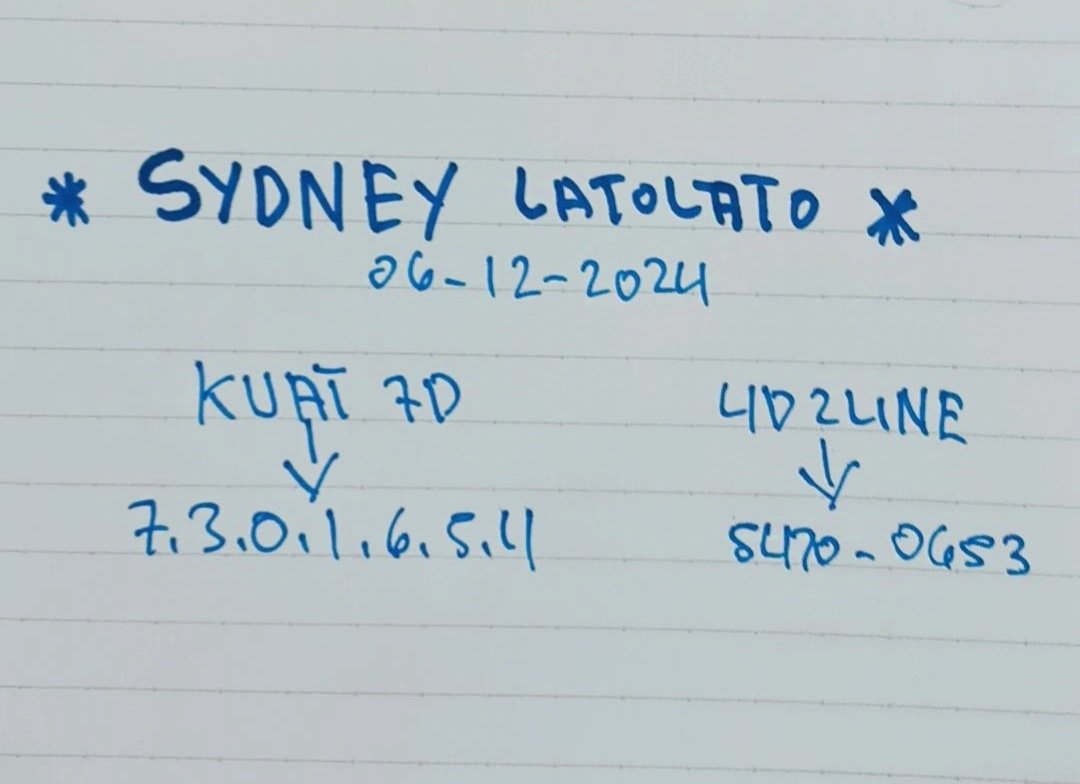 * SYDNEY LATOLATO *
06-12-2024
KUAT 7D
4D 2LINE
7.3.0.1.6.5.4
5470-0653